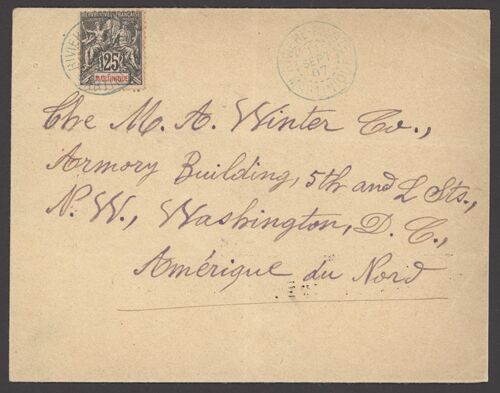 25
MARTINIQUE
SEPT
07
The M. A. Winter Co.,
Armory Building, 5th and L Sts.,
N. W., Washington, D. C.,
Amérique du Nord